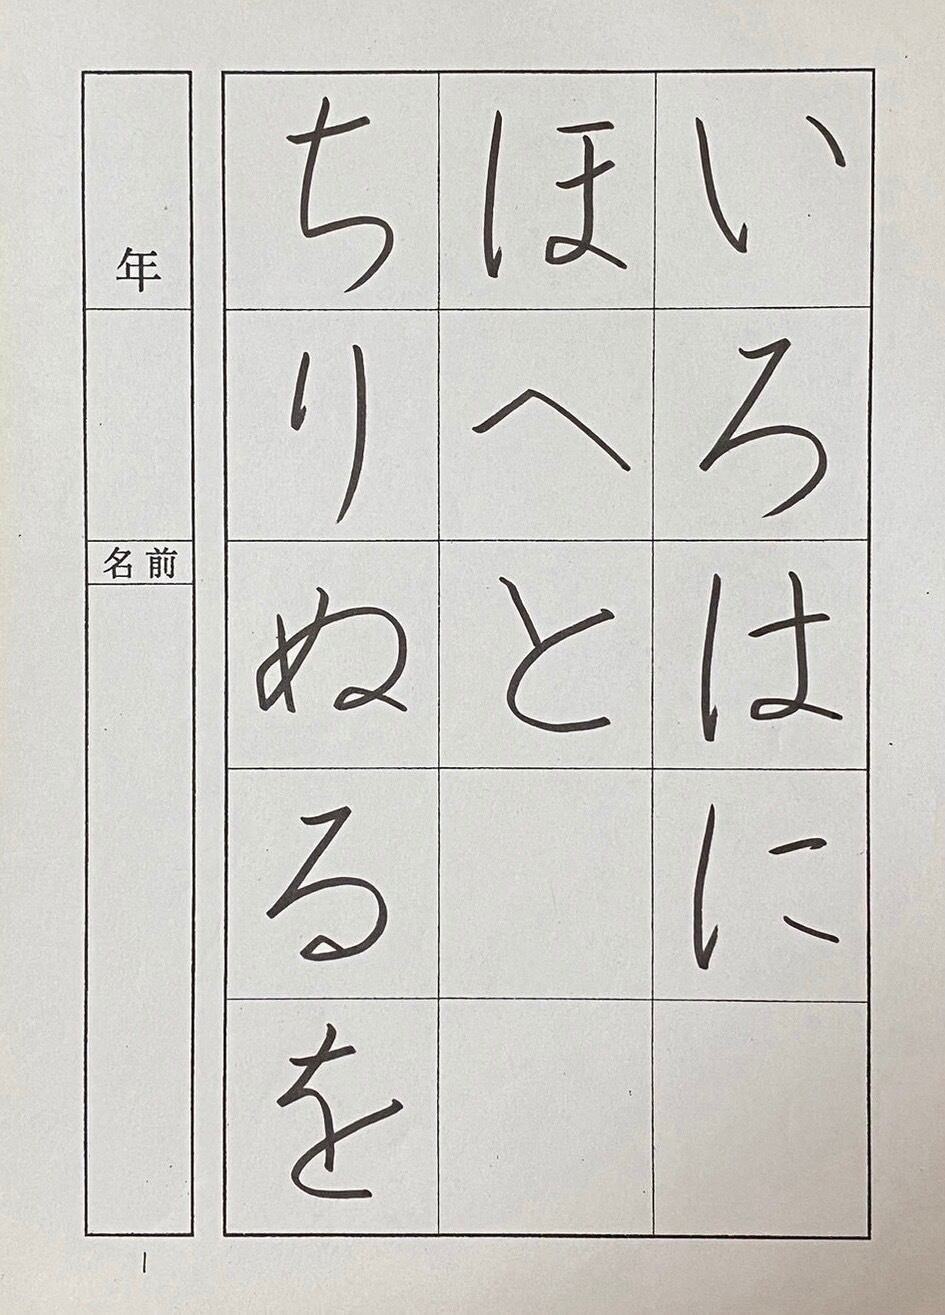 いろはに
ほへと
ちりぬるを
年
名前
1